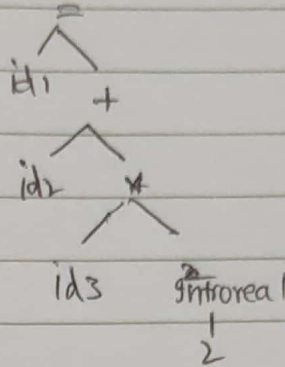 =
id1
+
id2
*
id3 intoreal
2